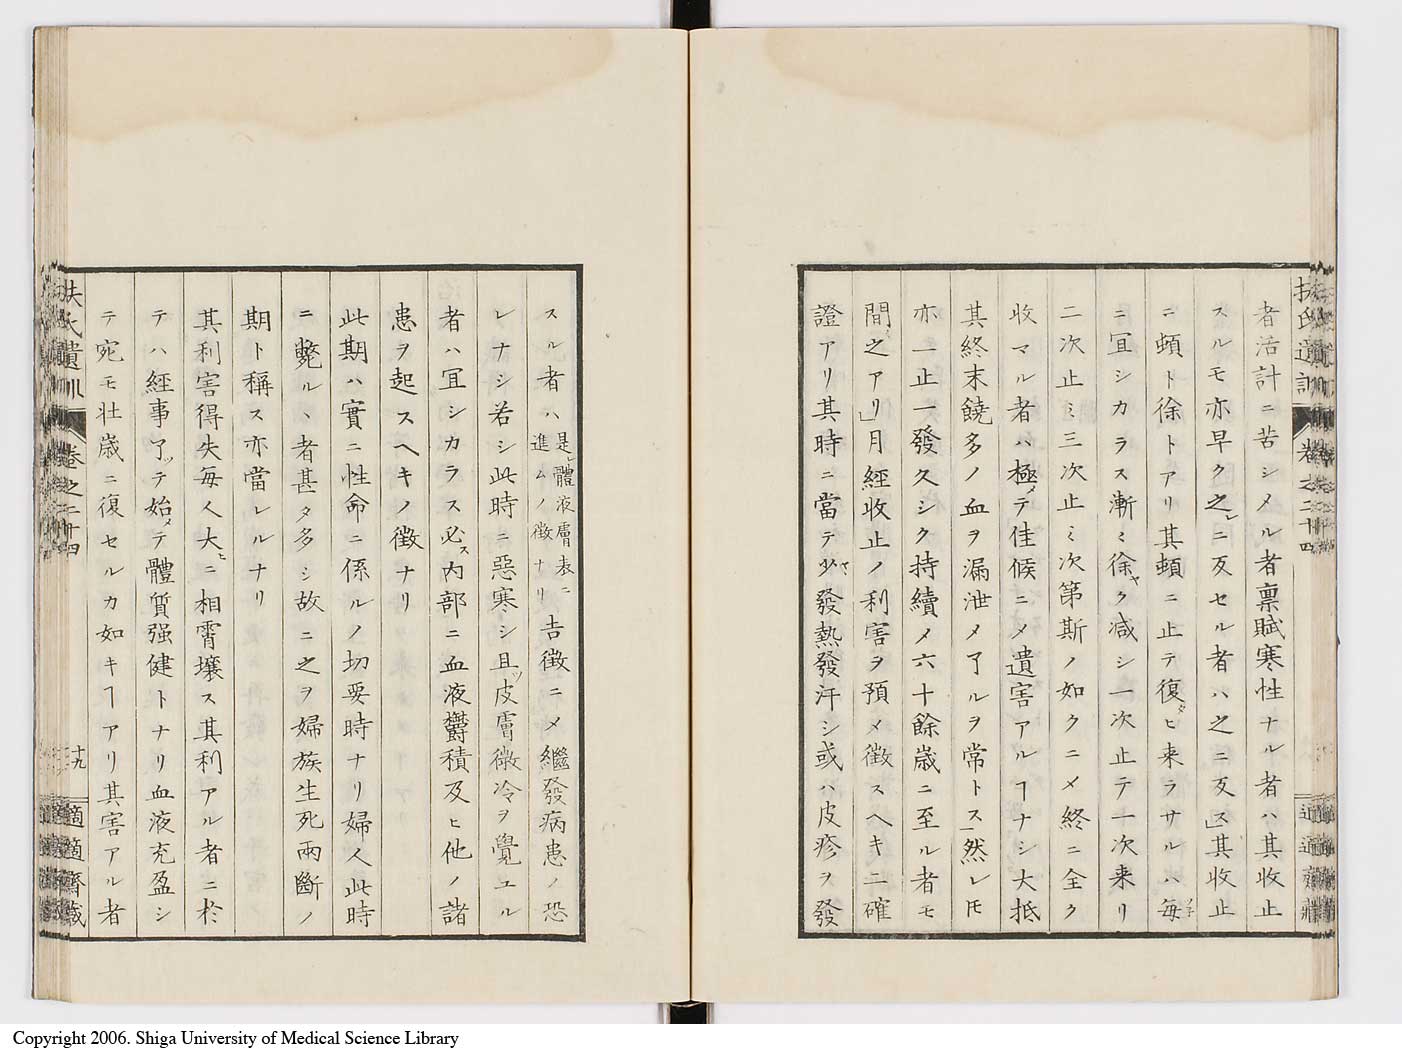 者活計ニ苦シメル者稟賦寒性ナル者ハ其收止
スルモ亦早ク之ニ反セル者ハ之ニ反ス」其收止
ニ頓ト徐トアリ其頓ニ止テ復タヒ来ラサルハ毎
ニ冝シカラス漸〻徐ヤク減シ一次止テ一次来リ
二次止ミ三次止ミ次第斯ノ如クニメ終ニ全ク
收マル者ハ極メテ佳候ニメ遺害アルヿナシ大抵
其終末饒多ノ血ヲ漏泄メ了ルヲ常トス然レ𪜈
亦一止一發久シク持續メ六十餘歳ニ至ル者モ
間之アリ」月經收止ノ利害ヲ預メ徴スヘキニ確
證アリ其時ニ當テ少ヤ發熱發汗シ或ハ皮疹ヲ發
スル者ハ是レ體液膚表ニ進ムノ徴ナリ吉徴ニメ繼發病患ノ恐
レナシ若シ此時ニ惡寒シ且ツ皮膚微冷ヲ覺ユル
者ハ冝シカラス必ス内部ニ血液欝積及ヒ他ノ諸
患ヲ起スヘキノ徴ナリ
此期ハ實ニ性命ニ係ルノ切要時ナリ婦人此時
ニ斃ルヽ者甚タ多シ故ニ之ヲ婦族生死兩斷ノ
期ト稱ス亦當レルナリ
其利害得失毎人大ヒニ相霄壤ス其利アル者ニ於
テハ經事了ツテ始メテ體質强健トナリ血液充盈シ
テ宛モ壮歳ニ復セルカ如キヿアリ其害アル者
扶氏遺訓
卷之二十四
十九
適適齋藏
Copyright 2006. Shiga University of Medical Science Library